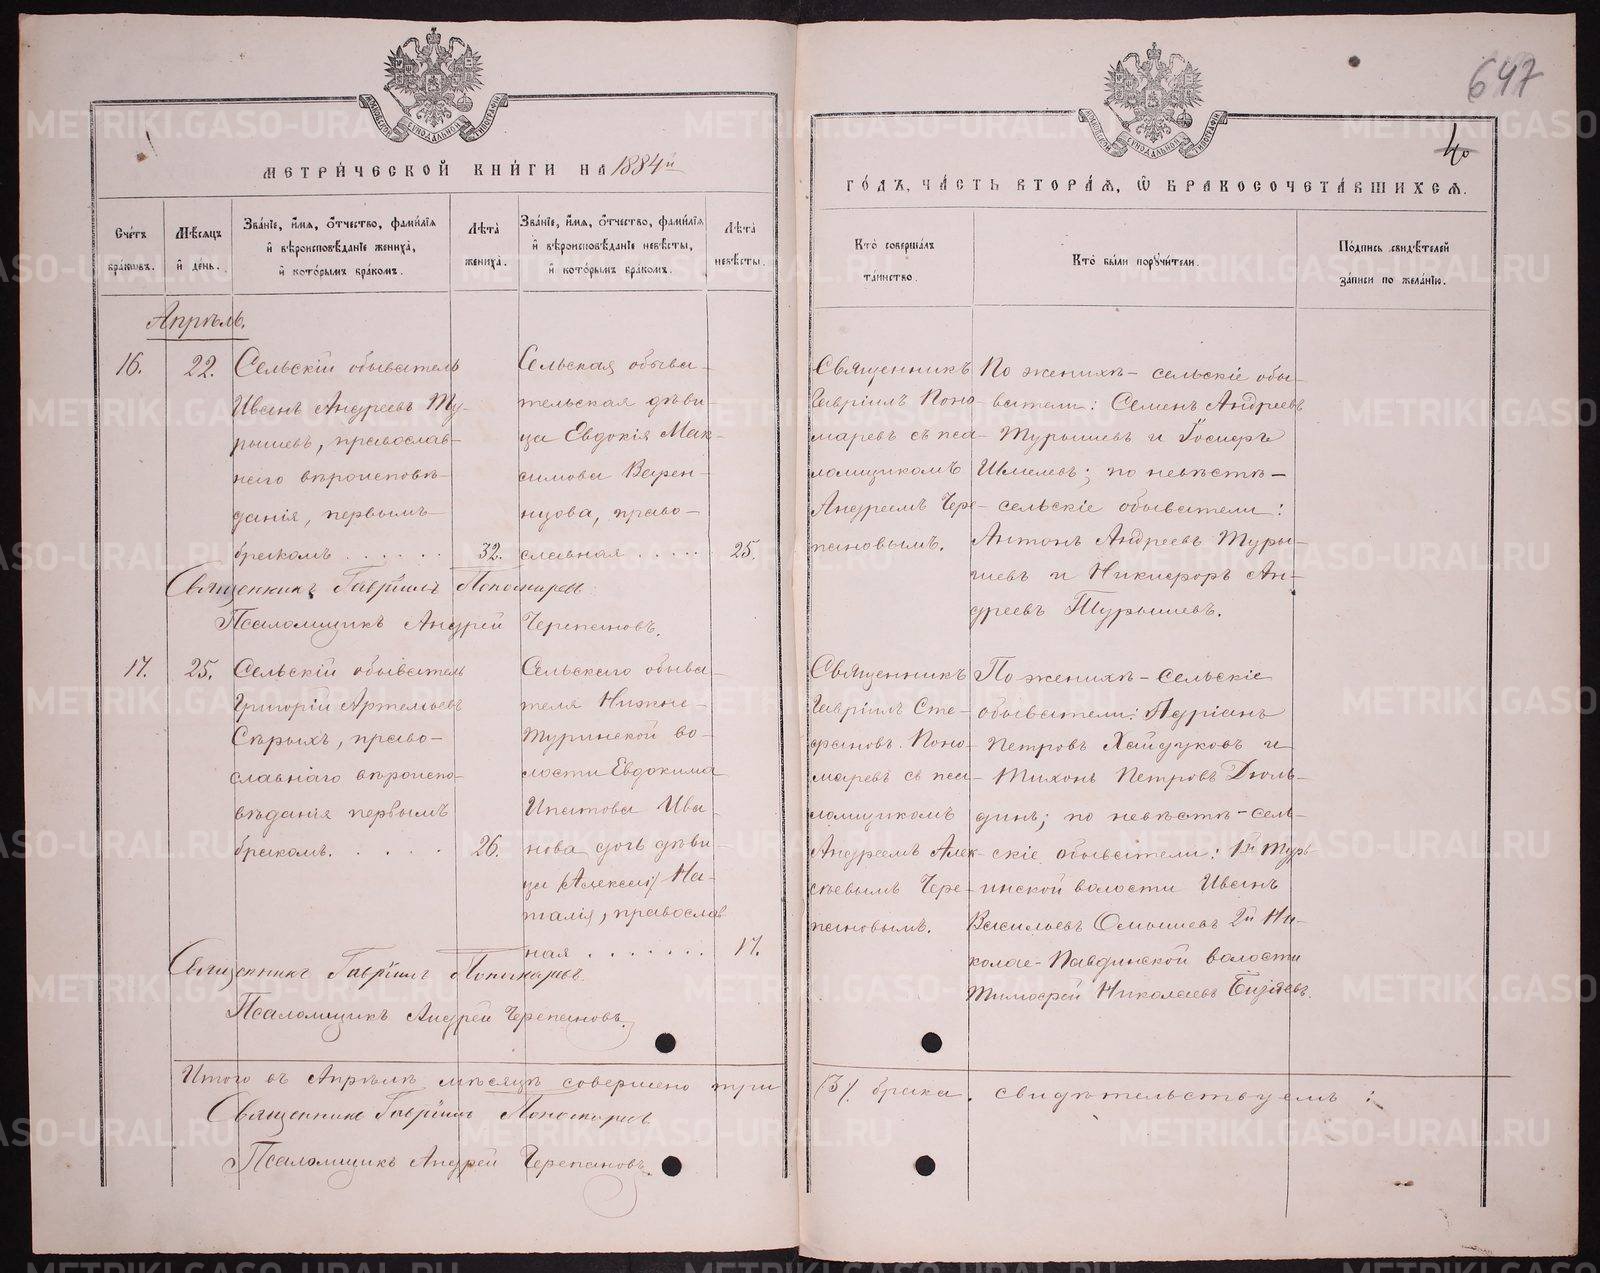 647
40
МЕТРИ́ЧЕСКОЙ КНИ́ГИ НА 1884й
ГО́ДЪ, ЧА́СТЬ ВТОРА́Ѧ, Ѽ БРАКОСОЧЕТА́ВШИХСѦ.
Сче́тъ бра́ковъ.
Мѣ́сяцъ и҆ де́нь.
Зва́нїе, и҆́мѧ, ѻ҆́тчество, фами́лїѧ
и҆ вѣроисповѣ́данїе жениха̀,
и҆ кото́рымъ бра́комъ.
Лѣ́та̀ жениха̀.
Зва́нїе, и҆́мѧ, ѻ҆́тчество, фами́лїѧ
и҆ вѣроисповѣ́данїе невѣ́сты,
и҆ кото́рымъ бра́комъ.
Лѣ́та̀ невѣ́сты.
Кто̀ соверша́лъ
та́инство.
Кто̀ бы́ли пору́чители.
По́дпись свидѣ́телей
за́писи по жела́нїю.
Апрѣль.
16.
22.
Сельскій обыватель
Иванъ Андреевъ Ту-
рышевъ, православ-
наго вѣроисповѣ-
данія, первымъ
бракомъ . . . . . .
32.
Сельская обыва-
тельская дѣви-
ца Евдокія Мак-
симова Верен-
цова, право-
славная . . . . .
25.
Священникъ
Гавріилъ Поно-
маревъ съ пса-
ломщикомъ
Андреемъ Чере-
пановымъ.
По женихѣ – сельскіе обы-
ватели: Семенъ Андреевъ
Турышевъ и Іосифъ
Шмелевъ; по невѣстѣ –
сельскіе обыватели:
Антонъ Андреевъ Туры-
шевъ и Никифоръ Ан-
дреевъ Турышевъ.
Священникъ Гавріилъ Пономаревъ
Псаломщикъ Андрей Черепановъ.
17.
25.
Сельскій обыватель
Григорій Артемьевъ
Сѣрыхъ, право-
славнаго вѣроиспо-
вѣданія первымъ
бракомъ. . . . .
26.
Сельскаго обыва-
теля Нижне-
Туринской во-
лости Евдокима
Ипатова Ива-
нова дочь дѣви-
ца (Алексаи) На-
талія, православ
ная . . . . . . .
17.
Священникъ
Гавріилъ Сте-
фановъ Поно-
маревъ съ пса-
ломщикомъ
Андреемъ Алек-
сѣевымъ Чере-
пановымъ.
По женихѣ – сельскіе
обыватели: Адріанъ
Петровъ Хайдуковъ и
Тихонъ Петровъ Дюль-
динъ; по невѣстѣ – сель-
скіе обыватели: 1й Тур-
инской волости Иванъ
Васильевъ 2й Ни-
колае-Павдинской волости
Тимофей Николаевъ Бизяевъ.
Священникъ Гавріилъ Пономаревъ.
Псаломщикъ Андрей Черепановъ.
Итого въ Апрѣлѣ мѣсяцѣ совершено три (3) брака, свидѣтельствуемъ:
Священникъ Гавріилъ Пономаревъ
Псаломщикъ Андрей Черепановъ.
METRIKI.GASO-URAL.RU